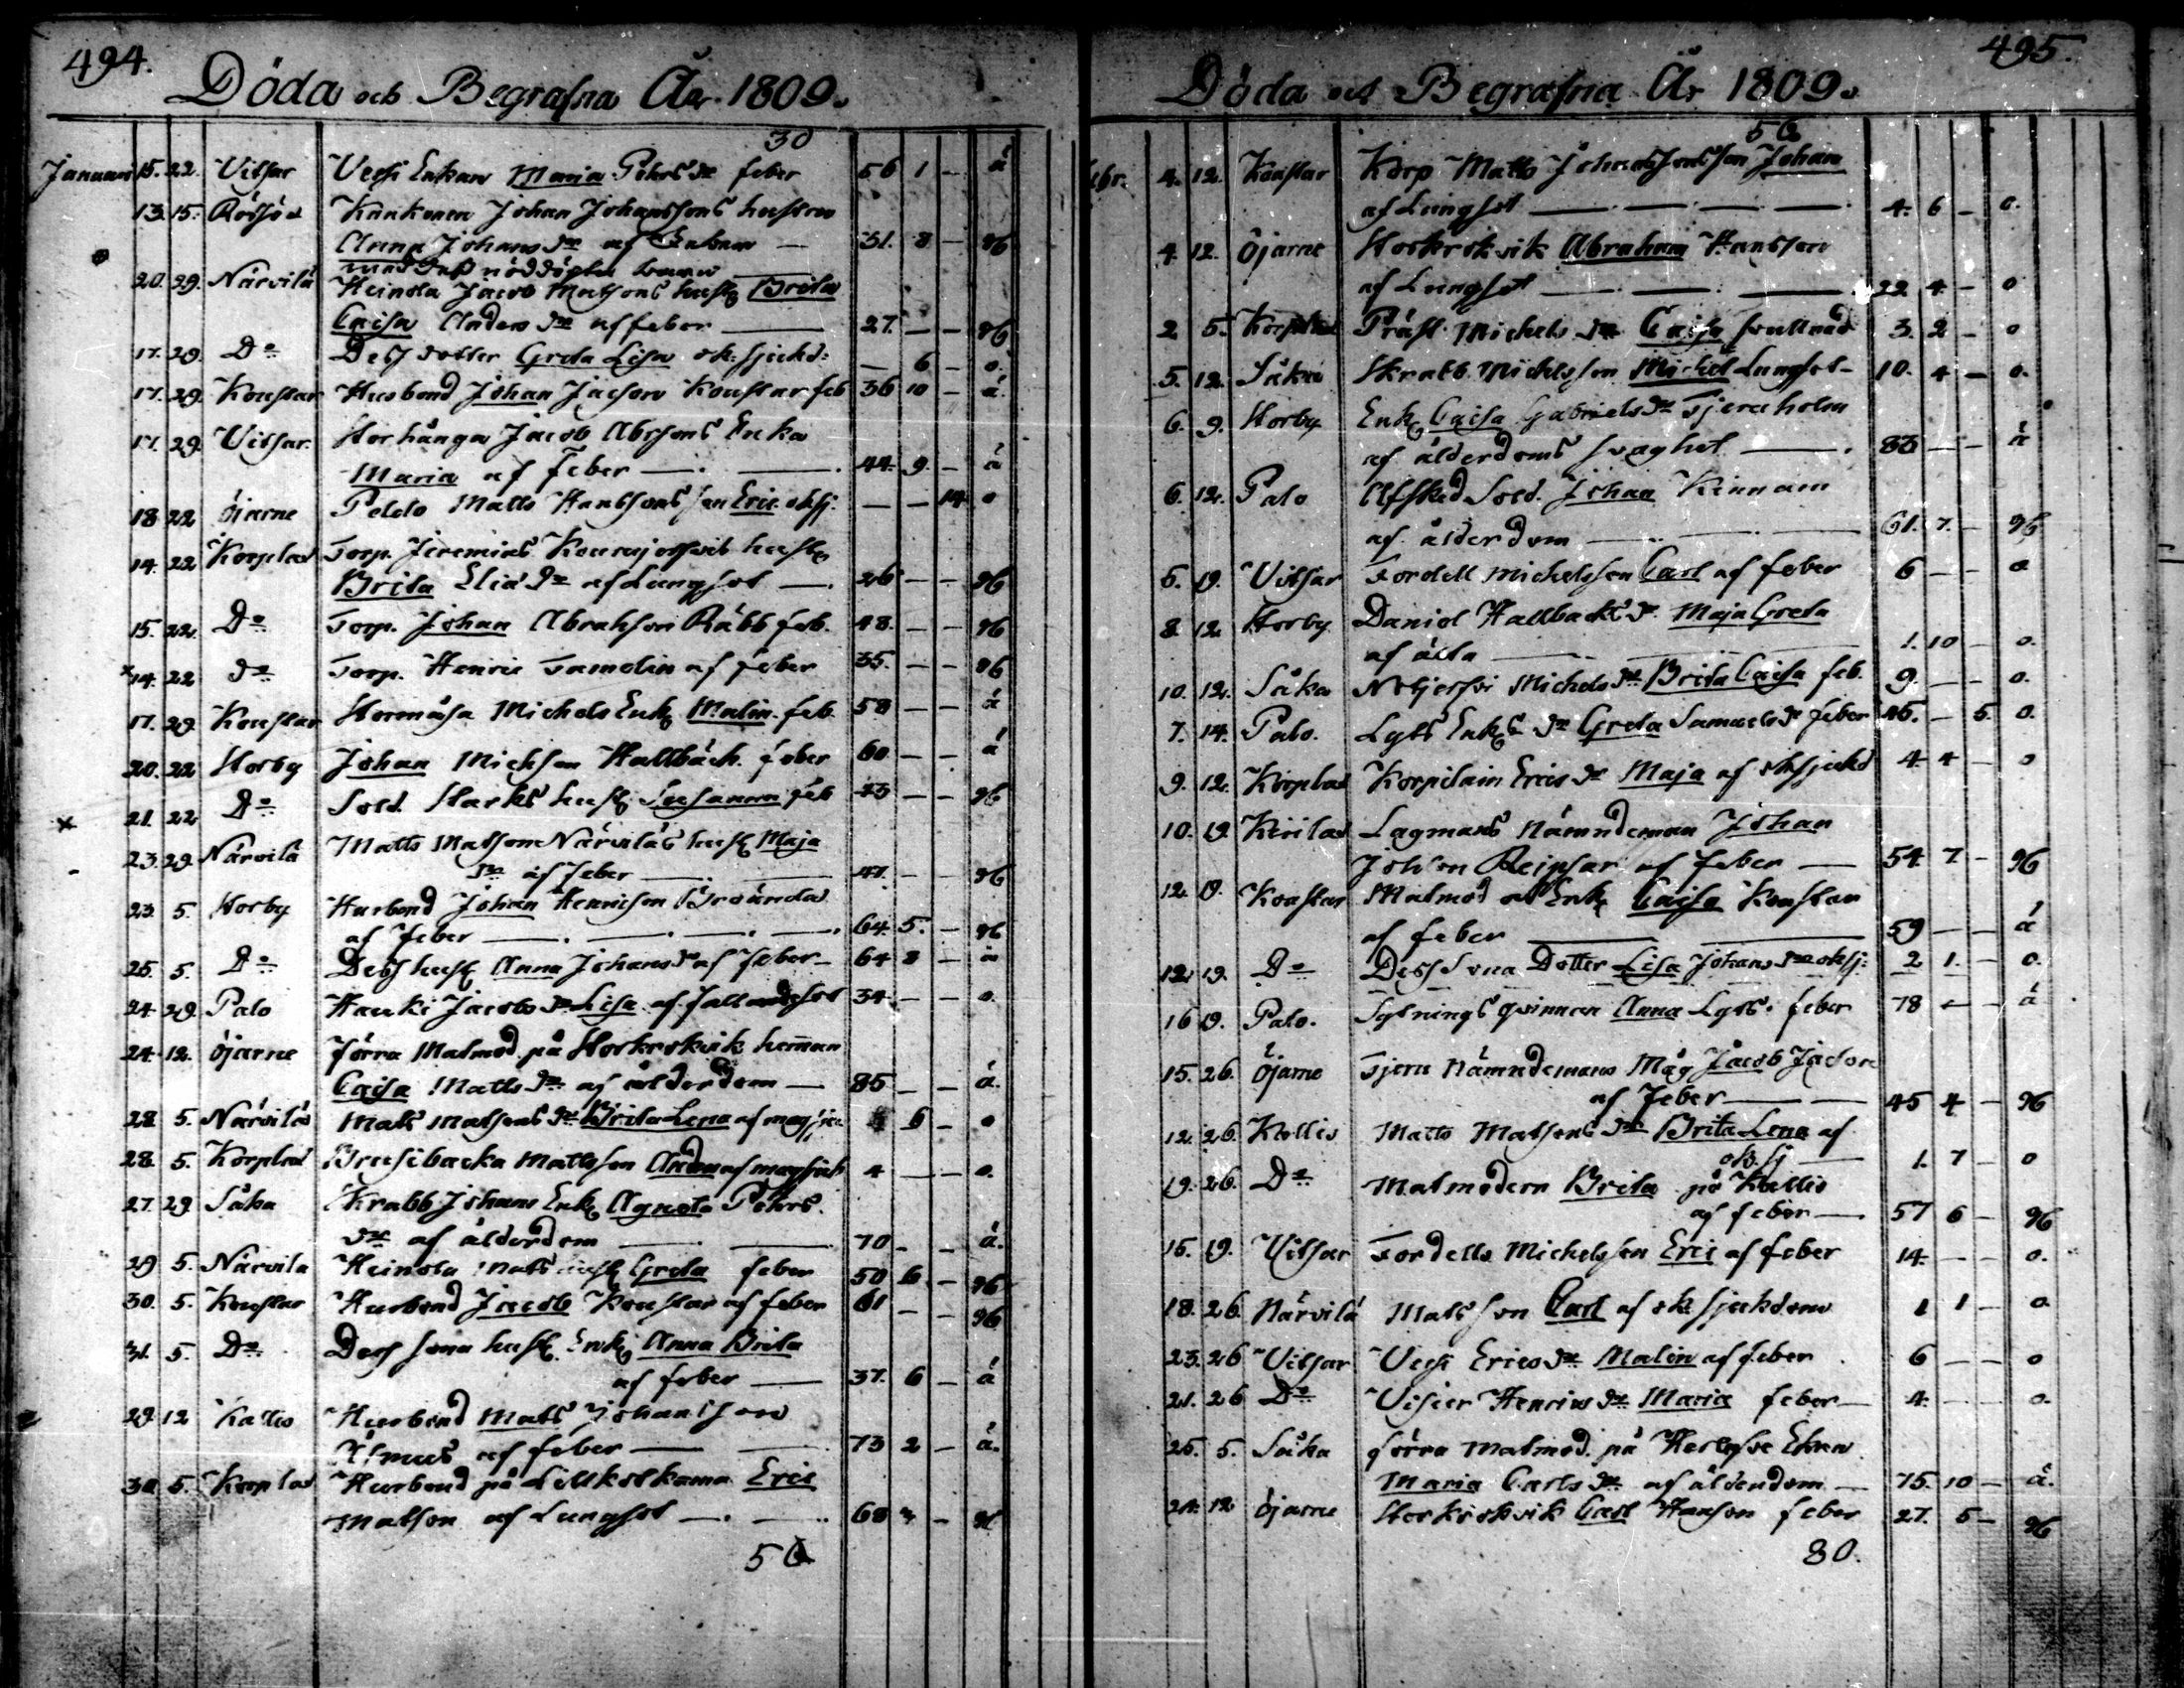 494.
Döda och Begrafna År 1809.
30
Januari 15. 22. Vitsar Vesi Enkan Maria Pehrs dr feber 56 1 — á
13. 15. Rösjö Kankonen Johan Johanssons hustru
Anna Johans dr af — 31. 8 — 96
med dess nöddöpta barn
20. 29. Närvilä Heinola Jacob Matsons hust Brita
Caisa Anders dr af feber — 27. — — 96
17. 29. Do Dess dotter Greta Lisa ok: sjukd: — 6 — o.
17. 29. Koustar Husbond Johan Jacson Koustar feb 36 10 — á
17. 29. Vitsar. Storhånga Jacob Abrsons Enka
Maria af Feber — 44. 9. — á
18 22 Öjarne Peldo Matts Hanssons son Eric oksj. — — 14. o
14. 22 Korplax Torp. Jeremias hust
Brita Elias dr af Lungsot — 26 — — 96
15. 22. Do Torp. Johan Abrahson Räbb feb. 48. — — 96
14. 22 do Torp. Henric Tamelin af feber 35. — — 96
17. 29. Koustar Stormåsa Michels Enk Malin. feb. 58 — — á
20. 22 Storby Johan Michson Hallbäck. feber 60 — — á
21. 22 Do Sold. Starks hust Susanna feb 43 — — 96
23. 29. Närvilä Matts Matsson Närviläs hust Maja
dr af feber — 47. — — 96
23. 5. Storby Husbond Johan Henricson Broända
af feber — 64. 5. — 96
25. 5. Do Dess hust Anna Johans dr af feber — 64 8 — á
24 29. Palo Hauki Jacobs dr Lisa af fallandesot 34. — — o.
24. 12. Öjarne förra Matmod. på Storkrokvik heman
Caisa Matts dr af ålderdom — 85 — — á
28. 5. Närvilä Mats Matsons dr Brita Lena af magsju. 6 — o
28. 5. Korplax Brusibacka Mattsson Anders af magsjuk 4 — — o.
27. 29. Såka Skrabb Johans Enk Agneta Pehrs.
dr af ålderdom — 70 — — á.
29 5. Närvila Heinola Mats hust Greta feber 50 6 — 96
30. 5. Koustar Husbond Jacob Koustar af feber 61 — — 96
31. 5. Do Dess sona hust Enk Anna Brita
af feber — 37. 6 — á
29. 12 Kallis Husbond Mats Johansson
af feber — 73 2 — á.
30. 5. Korplax Husbond på Lillkolkama Eric
Matson af Lungsot — 68 7 — 96
56
495.
Döda och Begrafna År 1809.
56
Febr. 4. 12. Koustar Korp Matts Johanssons son Johan
af Lungsot — 4. 6 — o.
4. 12. Öjarne Storkrokvik Abraham Hansson
af Lungsot — 22 4 — o
2 5. Korplax Präst. Michels dr Caisa svullnad 3. 2 — o
5. 12. Såka Skrabb. Michelsson Michel Lungsot — 10. 4 — o.
6. 9. Storby Enk Caisa Gabriels dr Tjeruholm
af ålderdoms svaghet — 83 — — á
6. 12. Palo Afsked Sold. Johan Kinnam
af ålderdom — 61. 7. — 96
6. 19. Vitsar Fordell Michelsson Carl af feber 6 — — o
8. 12 Storby Daniel Hallbacks dr Maja Greta
af — 1. 10 — o.
10. 12. Såka Michels dr Brita Caisa feb. 9. — — o.
7. 14. Palo. Lyts Enks dr Greta Samuels dr feber 46. — 5. o.
9. 12. Korplax Korpilain Erics dr Maja af oksjukd 4. 4 — o
10. 19. Lagmans Nämndeman Johan
Johson Reipsar af feber — 54 7 — 96
12. 19. Koustar Matmod at Enk Caisa Koustar
af feber — 59 — — á
12. 19. Do Dess Sona Dotter Lisa Johans dr oksj: 2 1. — o.
16 19. Palo. Sytnings qvinnan Anna Lyts. feber 78 — — á
15. 26. Öjarne Tjeru Nämndemans Måg Jacob Jacson
af Feber — 45 4 — 96
12. 26. Kallis Matts Matsons dr Brita Lena af
ok. sj — 1. 7 — o
19. 26. Do Matmodern Brita på Kallis
af feber — 57 6 — 96
16. 19. Vitsar Fordells Michelsson Eric af feber 14. — — o.
18. 26. Närvilä Mats son Carl af ok: sjukdom 1 1 — o
23. 26 Vitsar Vesi Erics dr Malin af feber. 6 — — o
21. 26 Do Henrics dr Maria feber — 4. — — o.
25. 5. Såka förra Matmod. på Herlefve
Maria Carls dr af ålderdom — 75. 10 — á.
24. 12. Öjarne Storkrokvik Carl Hanson feber 27. 5 — 96
80.